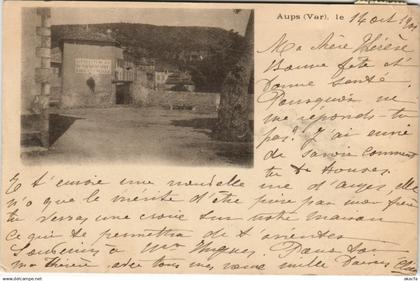 Aups (Var), le 14 oct 1901
Ma chère Thérèse
Bonne fête et
bonne santé.
Pourquoi ne
me réponds-tu
pas? J'ai envie
de savoir comment
tu te trouves.
Je t'envoie une nouvelle vue d'Aups, elle
n'a que le mérite d'être prise par mon frère
tu verras une croix sur notre maison
ce qui te permettra de t'orienter.
Souvenirs à Mme
ma chère, avec tous mes vœux mille baisers